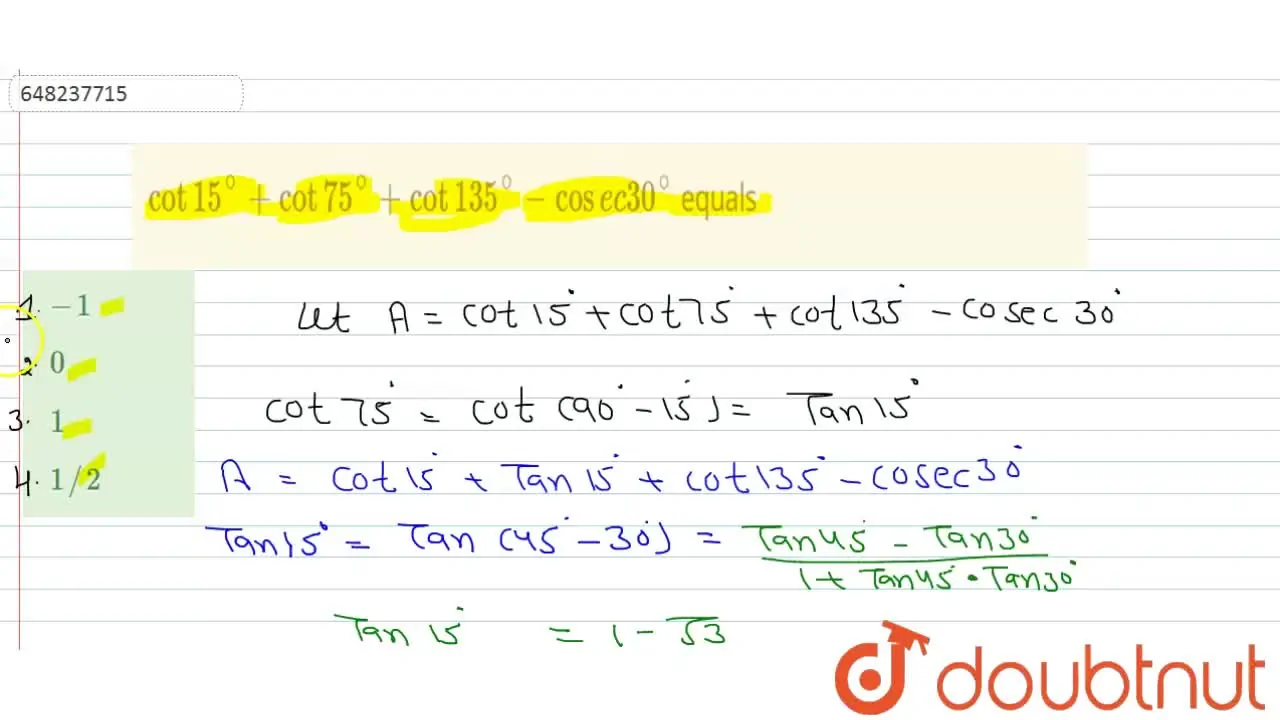 648237715
cot 15° + cot 75° + cot 135° − cosec30° equals
1. −1
2. 0
3. 1
4. 1/2
Let A = cot 15° + cot 75° + cot 135° − cosec 30°
cot 75° = cot (90° − 15°) = Tan 15°
A = cot 15° + Tan 15° + cot 135° − cosec 30°
Tan 15° = Tan (45° − 30°) = Tan 45° − Tan 30°
1 + Tan 45° • Tan 30°
Tan 15° = 1 − √3
doubtnut